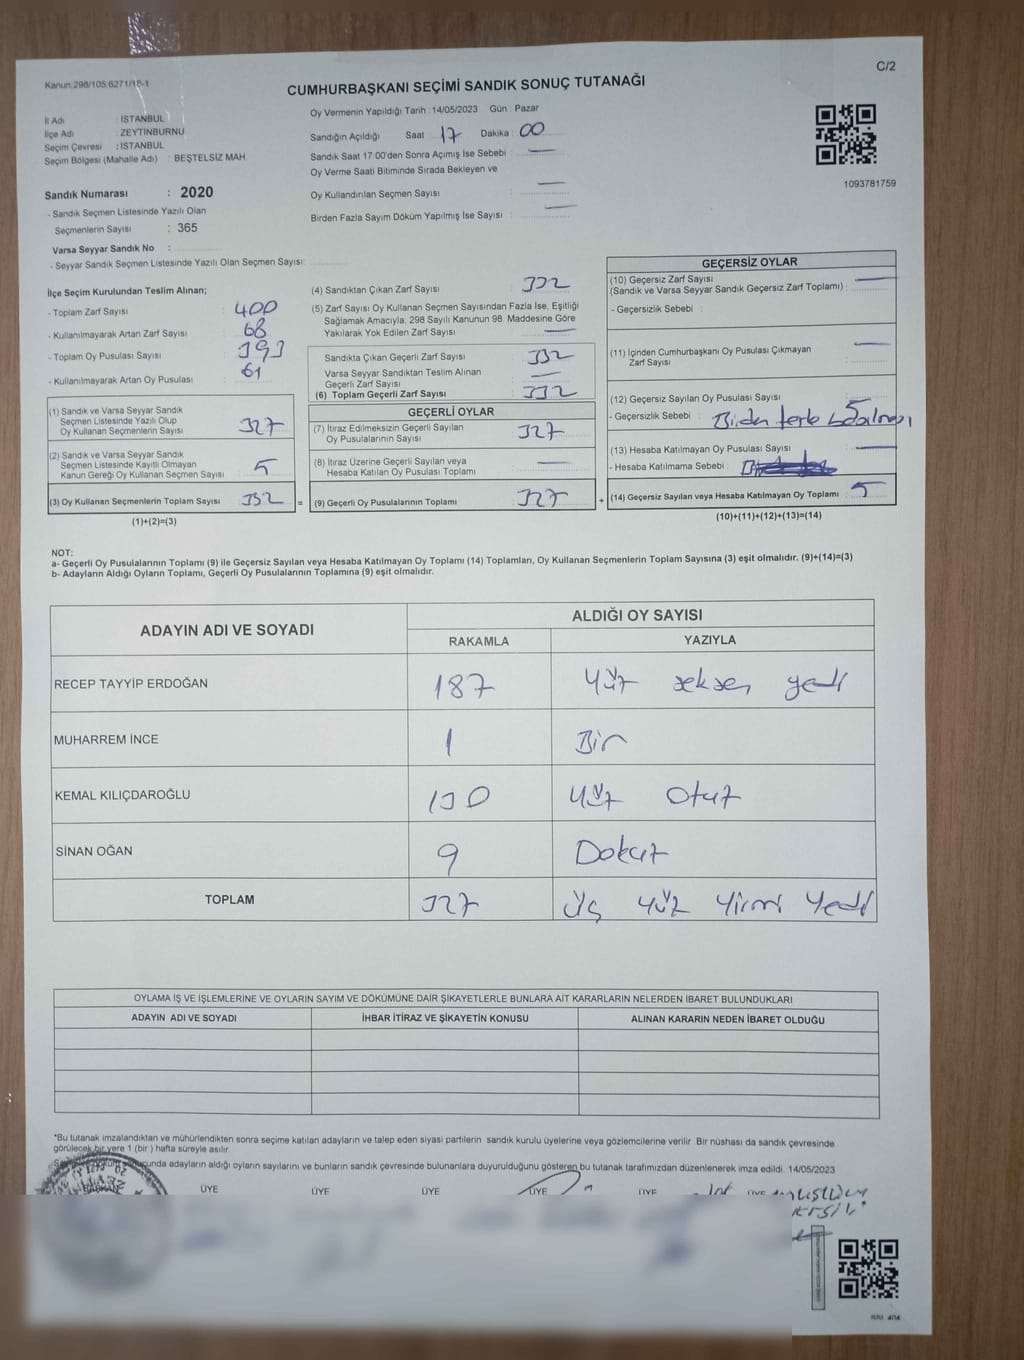 Kanun:298/105,6271/18-1
C/2
CUMHURBAŞKANI SEÇİMİ SANDIK SONUÇ TUTANAĞI
İl Adı : İSTANBUL
İlçe Adı : ZEYTİNBURNU
Seçim Çevresi : İSTANBUL
Seçim Bölgesi (Mahalle Adı) : BEŞTELSİZ MAH.
Sandık Numarası : 2020
- Sandık Seçmen Listesinde Yazılı Olan
Seçmenlerin Sayısı : 365
Varsa Seyyar Sandık No :
- Seyyar Sandık Seçmen Listesinde Yazılı Olan Seçmen Sayısı:
Oy Vermenin Yapıldığı Tarih : 14/05/2023 Gün : Pazar
Sandığın Açıldığı Saat : 17 Dakika : 00
Sandık Saat 17:00'den Sonra Açımış İse Sebebi : —
Oy Verme Saati Bitiminde Sırada Bekleyen ve
Oy Kullandırılan Seçmen Sayısı : —
Birden Fazla Sayım Döküm Yapılmış İse Sayısı : —
1093781759
İlçe Seçim Kurulundan Teslim Alınan;
- Toplam Zarf Sayısı : 400
- Kullanılmayarak Artan Zarf Sayısı : 68
- Toplam Oy Pusulası Sayısı : 393
- Kullanılmayarak Artan Oy Pusulası : 61
(1) Sandık ve Varsa Seyyar Sandık
Seçmen Listesinde Yazılı Olup
Oy Kullanan Seçmenlerin Sayısı : 327
(2) Sandık ve Varsa Seyyar Sandık
Seçmen Listesinde Kayıtlı Olmayan
Kanun Gereği Oy Kullanan Seçmen Sayısı : 5
(3) Oy Kullanan Seçmenlerin Toplam Sayısı : 332
(1)+(2)=(3)
(4) Sandıktan Çıkan Zarf Sayısı : 332
(5) Zarf Sayısı Oy Kullanan Seçmen Sayısından Fazla İse, Eşitliği
Sağlamak Amacıyla, 298 Sayılı Kanunun 98. Maddesine Göre
Yakılarak Yok Edilen Zarf Sayısı : —
Sandıkta Çıkan Geçerli Zarf Sayısı : 332
Varsa Seyyar Sandıktan Teslim Alınan
Geçerli Zarf Sayısı : —
(6) Toplam Geçerli Zarf Sayısı : 332
GEÇERLİ OYLAR
(7) İtiraz Edilmeksizin Geçerli Sayılan
Oy Pusulalarının Sayısı : 327
(8) İtiraz Üzerine Geçerli Sayılan veya
Hesaba Katılan Oy Pusulası Toplamı : —
= (9) Geçerli Oy Pusulalarının Toplamı : 327 +
GEÇERSİZ OYLAR
(10) Geçersiz Zarf Sayısı
(Sandık ve Varsa Seyyar Sandık Geçersiz Zarf Toplamı) : —
- Geçersizlik Sebebi :
(11) İçinden Cumhurbaşkanı Oy Pusulası Çıkmayan
Zarf Sayısı : —
(12) Geçersiz Sayılan Oy Pusulası Sayısı : 5
- Geçersizlik Sebebi : Birden fazla
(13) Hesaba Katılmayan Oy Pusulası Sayısı : —
- Hesaba Katılmama Sebebi :
(14) Geçersiz Sayılan veya Hesaba Katılmayan Oy Toplamı : 5
(10)+(11)+(12)+(13)=(14)
NOT:
a- Geçerli Oy Pusulalarının Toplamı (9) ile Geçersiz Sayılan veya Hesaba Katılmayan Oy Toplamı (14) Toplamları, Oy Kullanan Seçmenlerin Toplam Sayısına (3) eşit olmalıdır. (9)+(14)=(3)
b- Adayların Aldığı Oyların Toplamı, Geçerli Oy Pusulalarının Toplamına (9) eşit olmalıdır.
ADAYIN ADI VE SOYADI ALDIĞI OY SAYISI
RAKAMLA YAZIYLA
RECEP TAYYİP ERDOĞAN 187 Yüz seksen yedi
MUHARREM İNCE 1 Bir
KEMAL KILIÇDAROĞLU 130 Yüz Otuz
SİNAN OĞAN 9 Dokuz
TOPLAM 327 Üç Yüz Yirmi Yedi
OYLAMA İŞ VE İŞLEMLERİNE VE OYLARIN SAYIM VE DÖKÜMÜNE DAİR ŞİKAYETLERLE BUNLARA AİT KARARLARIN NELERDEN İBARET BULUNDUKLARI
ADAYIN ADI VE SOYADI İHBAR İTİRAZ VE ŞİKAYETİN KONUSU ALINAN KARARIN NEDEN İBARET OLDUĞU
*Bu tutanak imzalandıktan ve mühürlendikten sonra seçime katılan adayların ve talep eden siyasi partilerin sandık kurulu üyelerine veya gözlemcilerine verilir. Bir nüshası da sandık çevresinde
görülecek bir yere 1 (bir) hafta süreyle asılır.
adayların aldığı oyların sayılarını ve bunların sandık çevresinde bulunanlara duyurulduğunu gösteren bu tutanak tarafımızdan düzenlenerek imza edildi. 14/05/2023
BAŞKAN ÜYE ÜYE ÜYE ÜYE ÜYE ÜYE